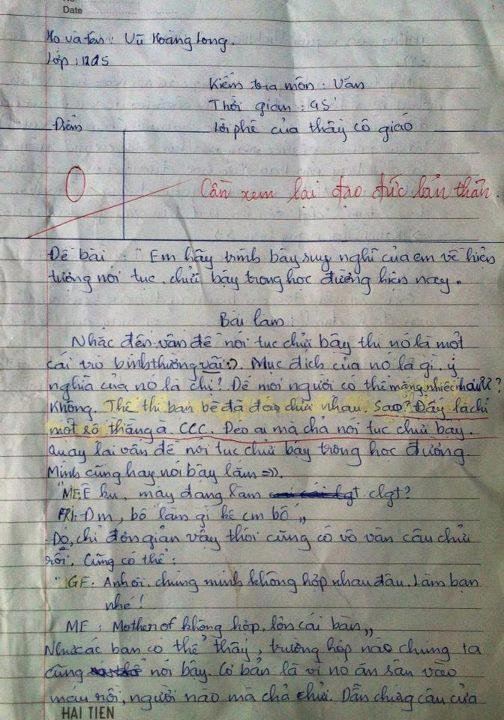 Date
Họ và tên : Vũ Hoàng Long.
Lớp : 12A5
Kiểm tra môn : Văn
Thời gian : 45'
Điểm
Lời phê của thầy cô giáo
0
Cần xem lại đạo đức bản thân.
Đề bài : " Em hãy trình bày suy nghĩ của em về hiện
tượng nói tục, chửi bậy trong học đường hiện nay.
Bài làm :
Nhắc đến vấn đề nói tục chửi bậy thì nó là một
cái trò bình thường vãi :). Mục đích của nó là gì, ý
nghĩa của nó là chi! Để mọi người có thể mắng nhiếc nhau ư?
Không. Thế thì bạn bè đã đéo chửi nhau. Sao? Đấy là chỉ
một số thằng à. CCC. Đéo ai mà chả nói tục chửi bậy.
Quay lại vấn đề nói tục chửi bậy trong học đường.
Mình cũng hay nói bậy lắm =)).
"ME: Ê ku, mày đang làm clgt?
FRI: Đm, bố làm gì kệ cm bố "
Đó, chỉ đơn giản vậy thôi cũng có vô vàn câu chửi
rồi. Cũng có thể :
"GF: Anh ơi, chúng mình không hợp nhau đâu. Làm bạn
nhé!
ME : Mother of không hợp, lồn cái bạn "
Như các bạn có thể thấy, trường hợp nào chúng ta
cũng nói bậy. Cơ bản là vì nó ăn sâu vào
máu rồi, người nào mà chả chửi. Dẫn chứng câu cửa
HAI TIEN